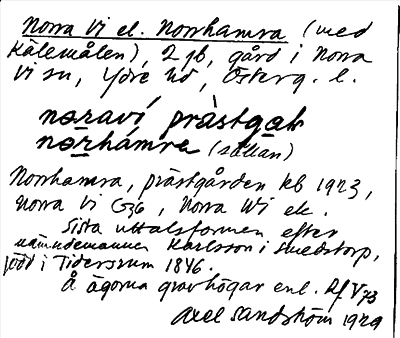 Norra Vi el. Norrhamra (med
Kälemålen), 2 gb, gård i Norra
Vi sn, Ydre hd, Österg. l.
nøravi prästgaḷn
nørhámra (sällan)
Norrhamra, prästgården kb 1923,
Norra Vi G36, Norra Wi ek.
Sista uttalsformen efter
nämndemannen Karlsson i Smedstorp,
född i Tidersrum 1846.
Å ägorna gravhögar enl. Rf V 73
Axel Sandström 1929